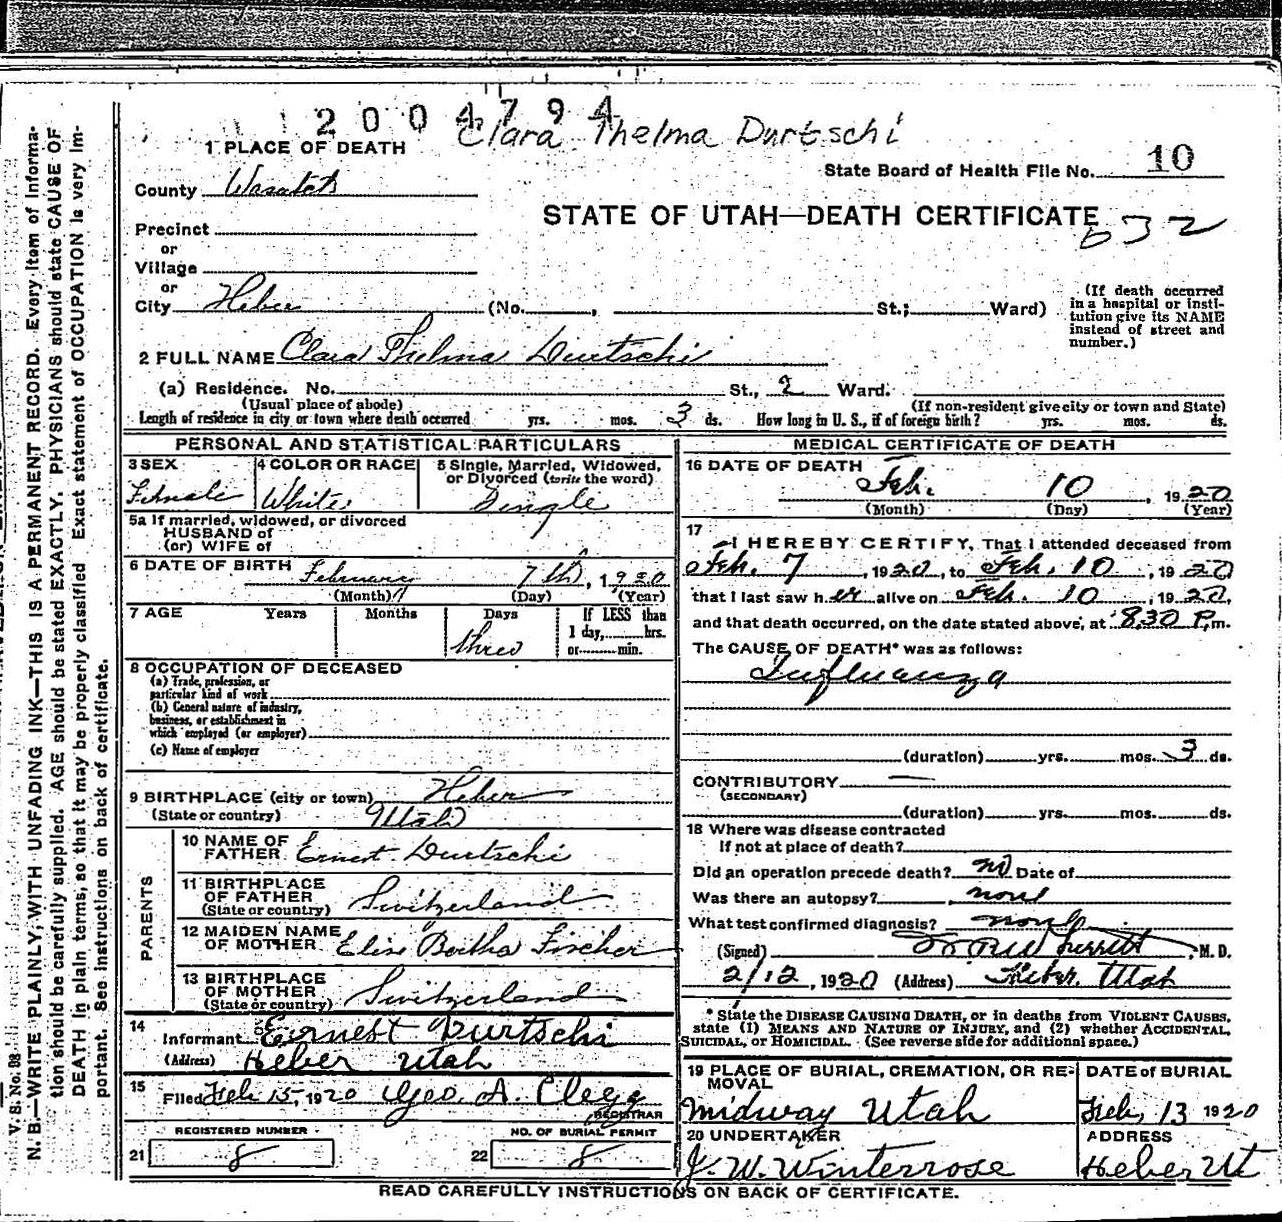 2004794
Clara Thelma Durtschi
1 PLACE OF DEATH
State Board of Health File No. 10
County Wasatch
STATE OF UTAH—DEATH CERTIFICATE
632
Precinct
or
Village
or
City Heber (No. , St.; Ward)
(If death occurred
in a hospital or insti-
tution give its NAME
instead of street and
number.)
2 FULL NAME Clara Thelma Durtschi
(a) Residence. No. St., 2 Ward.
(Usual place of abode) (If non-resident give city or town and State)
Length of residence in city or town where death occurred yrs. mos. 3 ds. How long in U. S., if of foreign birth? yrs. mos. ds.
PERSONAL AND STATISTICAL PARTICULARS
3 SEX
Female
4 COLOR OR RACE
White
5 Single, Married, Widowed,
or Divorced (write the word)
Single
5a If married, widowed, or divorced
HUSBAND of
(or) WIFE of
6 DATE OF BIRTH
February 7th, 1920
(Month) (Day) (Year)
7 AGE Years Months Days If LESS than
1 day, hrs.
three or min.
8 OCCUPATION OF DECEASED
(a) Trade, profession, or
particular kind of work
(b) General nature of industry,
business, or establishment in
which employed (or employer)
(c) Name of employer
9 BIRTHPLACE (city or town) Heber
(State or country) Utah
PARENTS
10 NAME OF
FATHER Ernest Durtschi
11 BIRTHPLACE
OF FATHER
(State or country) Switzerland
12 MAIDEN NAME
OF MOTHER Elise Bertha Fischer
13 BIRTHPLACE
OF MOTHER
(State or country) Switzerland
14
Informant Ernest Durtschi
(Address) Heber Utah
15
Filed Feb 15, 1920 Geo. A. Clegg
REGISTRAR
REGISTERED NUMBER NO. OF BURIAL PERMIT
21 8 22 8
MEDICAL CERTIFICATE OF DEATH
16 DATE OF DEATH
Feb. 10, 1920
(Month) (Day) (Year)
17
I HEREBY CERTIFY, That I attended deceased from
Feb. 7, 1920, to Feb. 10, 1920
that I last saw her alive on Feb. 10, 1920,
and that death occurred, on the date stated above, at 8.30 P.m.
The CAUSE OF DEATH* was as follows:
Influenza
(duration) yrs. mos. 3 ds.
CONTRIBUTORY
(SECONDARY)
(duration) yrs. mos. ds.
18 Where was disease contracted
If not at place of death?
Did an operation precede death? no Date of
Was there an autopsy? none
What test confirmed diagnosis? none
(Signed) M. D.
2/12, 1920 (Address) Heber, Utah
* State the DISEASE CAUSING DEATH, or in deaths from VIOLENT CAUSES,
state (1) MEANS AND NATURE OF INJURY, and (2) whether ACCIDENTAL,
SUICIDAL, or HOMICIDAL. (See reverse side for additional space.)
19 PLACE OF BURIAL, CREMATION, OR RE-
MOVAL
Midway Utah
DATE of BURIAL
Feb, 13 1920
20 UNDERTAKER
J. W. Winterrose
ADDRESS
Heber Ut
READ CAREFULLY INSTRUCTIONS ON BACK OF CERTIFICATE.
V. S. No. 98
N. B.—WRITE PLAINLY, WITH UNFADING INK—THIS IS A PERMANENT RECORD. Every item of informa-
tion should be carefully supplied. AGE should be stated EXACTLY. PHYSICIANS should state CAUSE OF
DEATH in plain terms, so that it may be properly classified. Exact statement of OCCUPATION is very im-
portant. See instructions on back of certificate.